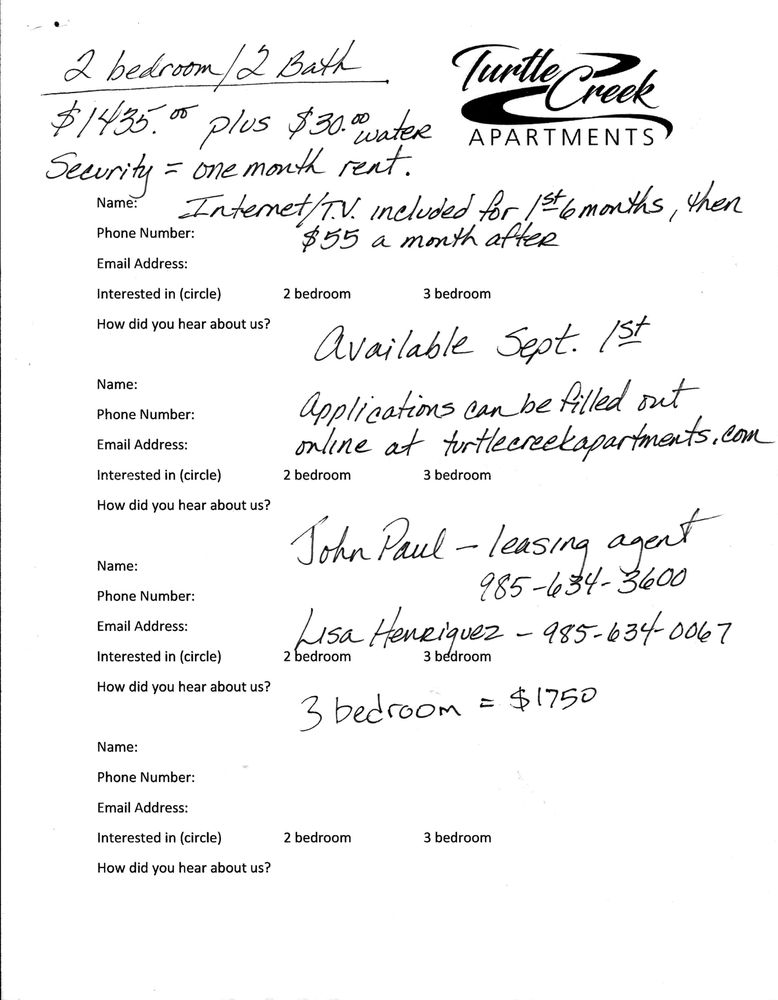 2 bedroom/2 Bath
Turtle Creek
APARTMENTS
$1435.00 plus $30.00 water
Security = one month rent.
Name:
Internet/T.V. included for 1st 6 months, then
Phone Number:
$55 a month after
Email Address:
Interested in (circle) 2 bedroom 3 bedroom
How did you hear about us?
Available Sept. 1st
Name:
Applications can be filled out
Phone Number:
online at turtlecreekapartments.com
Email Address:
Interested in (circle) 2 bedroom 3 bedroom
How did you hear about us?
John Paul - leasing agent
Name:
985-634-3600
Phone Number:
Email Address:
Lisa Henriquez - 985-634-0067
Interested in (circle) 2 bedroom 3 bedroom
How did you hear about us?
3 bedroom = $1750
Name:
Phone Number:
Email Address:
Interested in (circle) 2 bedroom 3 bedroom
How did you hear about us?